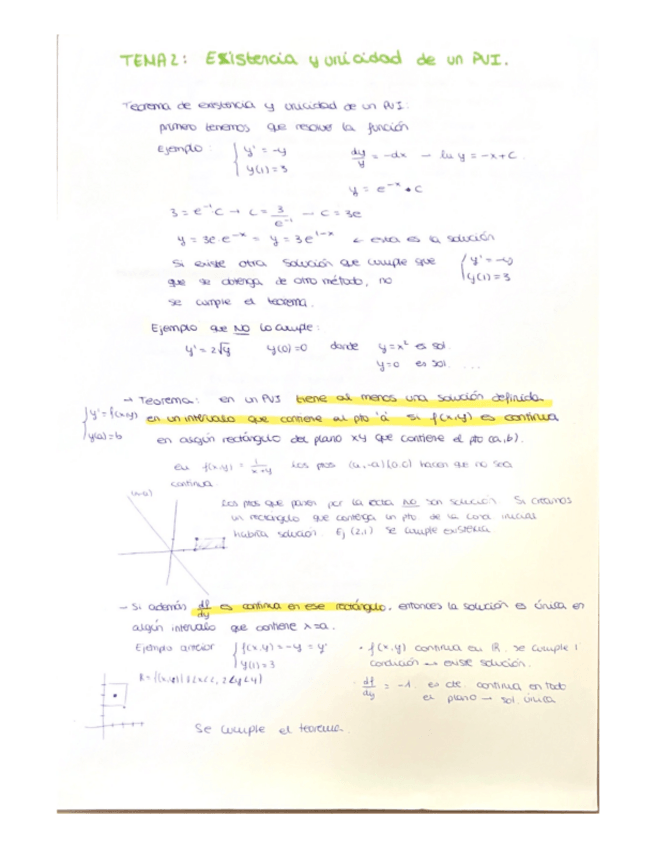 TEMA 2: Existencia y unicidad de un PVI.
Teorema de existencia y unicidad de un PVI:
primero tenemos que resolver la función
Ejemplo: { y' = -y    dy/y = -dx → ln y = -x + C
y(1) = 3
y = e^-x • C
3 = e^-1 C → C = 3/e^-1 → C = 3e
y = 3e·e^-x = y = 3e^1-x ← esta es la solución
Si existe otra solución que cumple que { y' = -y
que se obtenga de otro método, no    y(1) = 3
se cumple el teorema.
Ejemplo que NO lo cumple:
y' = 2√y    y(0) = 0    donde    y = x² es sol.
y = 0 es sol. ...
→ Teorema: en un PVI tiene al menos una solución definida
{ y' = f(x,y) en un intervalo que contiene al pto 'a' si f(x,y) es continua
y(a) = b en algún rectángulo del plano xy que contiene el pto (a,b).
En f(x,y) = 1/x+y los ptos (a,-a) (0,0) hacen que no sea
continua.
(a,-a)
Los ptos que pasen por la recta NO son solución. Si creamos
un rectángulo que contenga un pto de la
habría solución. Ej (2,1) se cumple existencia.
→ Si además df/dy es continua en ese rectángulo, entonces la solución es única en
algún intervalo que contiene x=a.
Ejemplo anterior { f(x,y) = -y = y'    • f(x,y) continua en R, se cumple 1
y(1) = 3    condición → existe solución.
R = {(x,y) |
• df/dy = -1 es cte. continua en todo
el plano → sol. única
Se cumple el teorema.